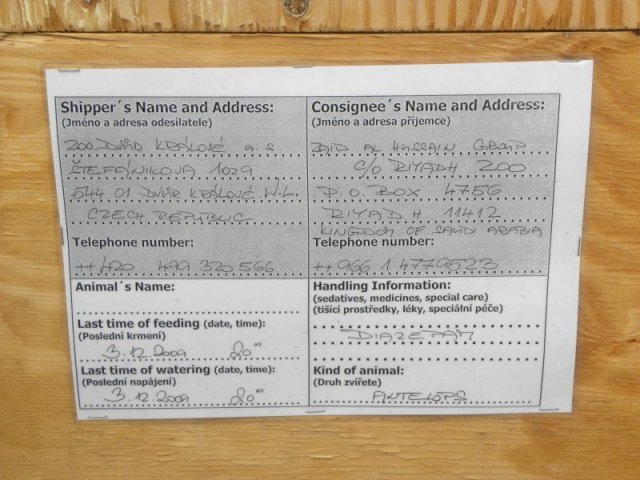 Shipper´s Name and Address:
(Jméno a adresa odesilatele)
ZOO DVŮR KRÁLOVÉ a.s.
ŠTEFÁNIKOVA 1029
544 01 DVŮR KRÁLOVÉ N.L.
CZECH REPUBLIC
Telephone number:
++420 499 320 566
Animal´s Name:
Last time of feeding (date, time):
(Poslední krmení)
3.12.2009 20 00
Last time of watering (date, time):
(Poslední napájení)
3.12.2009 20 00
Consignee´s Name and Address:
(Jméno a adresa příjemce)
ZAID AL HUSSAIN GROUP
C/O RIYADH ZOO
P.O. BOX 4756
RIYADH 11412
KINGDOM OF SAUDI ARABIA
Telephone number:
++966 1 4779523
Handling Information:
(sedatives, medicines, special care)
(tišící prostředky, léky, speciální péče)
DIAZEPAM
Kind of animal:
(Druh zvířete)
ANTELOPS